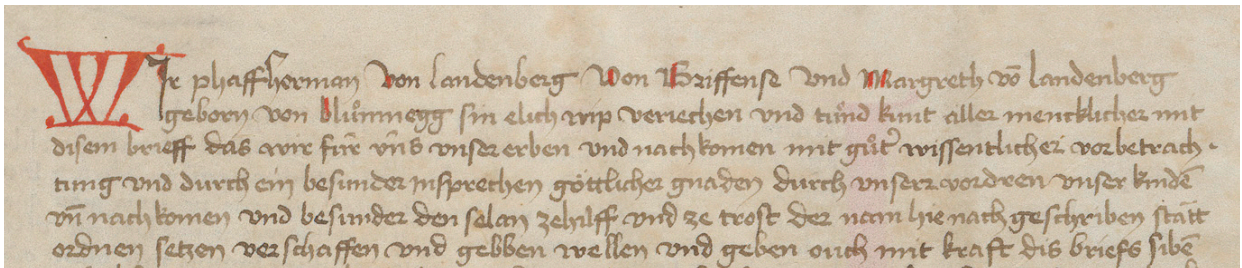 WIr phaff herman von landenberg von Griffense vnd Margreth vō landenberg
geborn von bluͦmnegg sin elich wip veriechen vnd tuͦnd kunt aller mencklicher mit
disem brieff das wir für vns vnser erben vnd nachkomen mit guͦter wissentlicher vorbetrach-
tung vnd durch ein besunder insprechen göttlicher gnaden durch vnserr vordren vnser kindē
vn̄ nachkomen vnd besunder den selan zehilff vnd ze trost der nam hie nach geschriben statt
ordnen setzen verschaffen vnd gebben wellen vnd geben ouch mit kraft dis briefs sibē